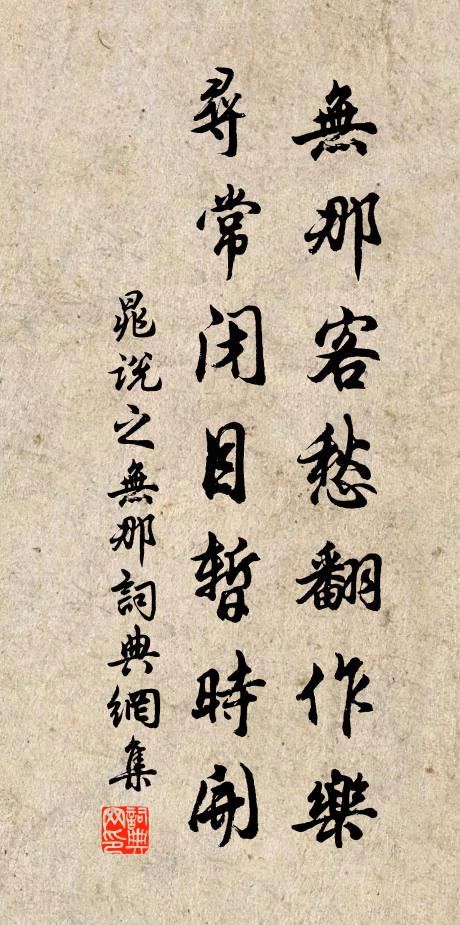 無那客愁翻作樂
尋常閉目暫時開
晁說之無那詞典網集
詞典
网印